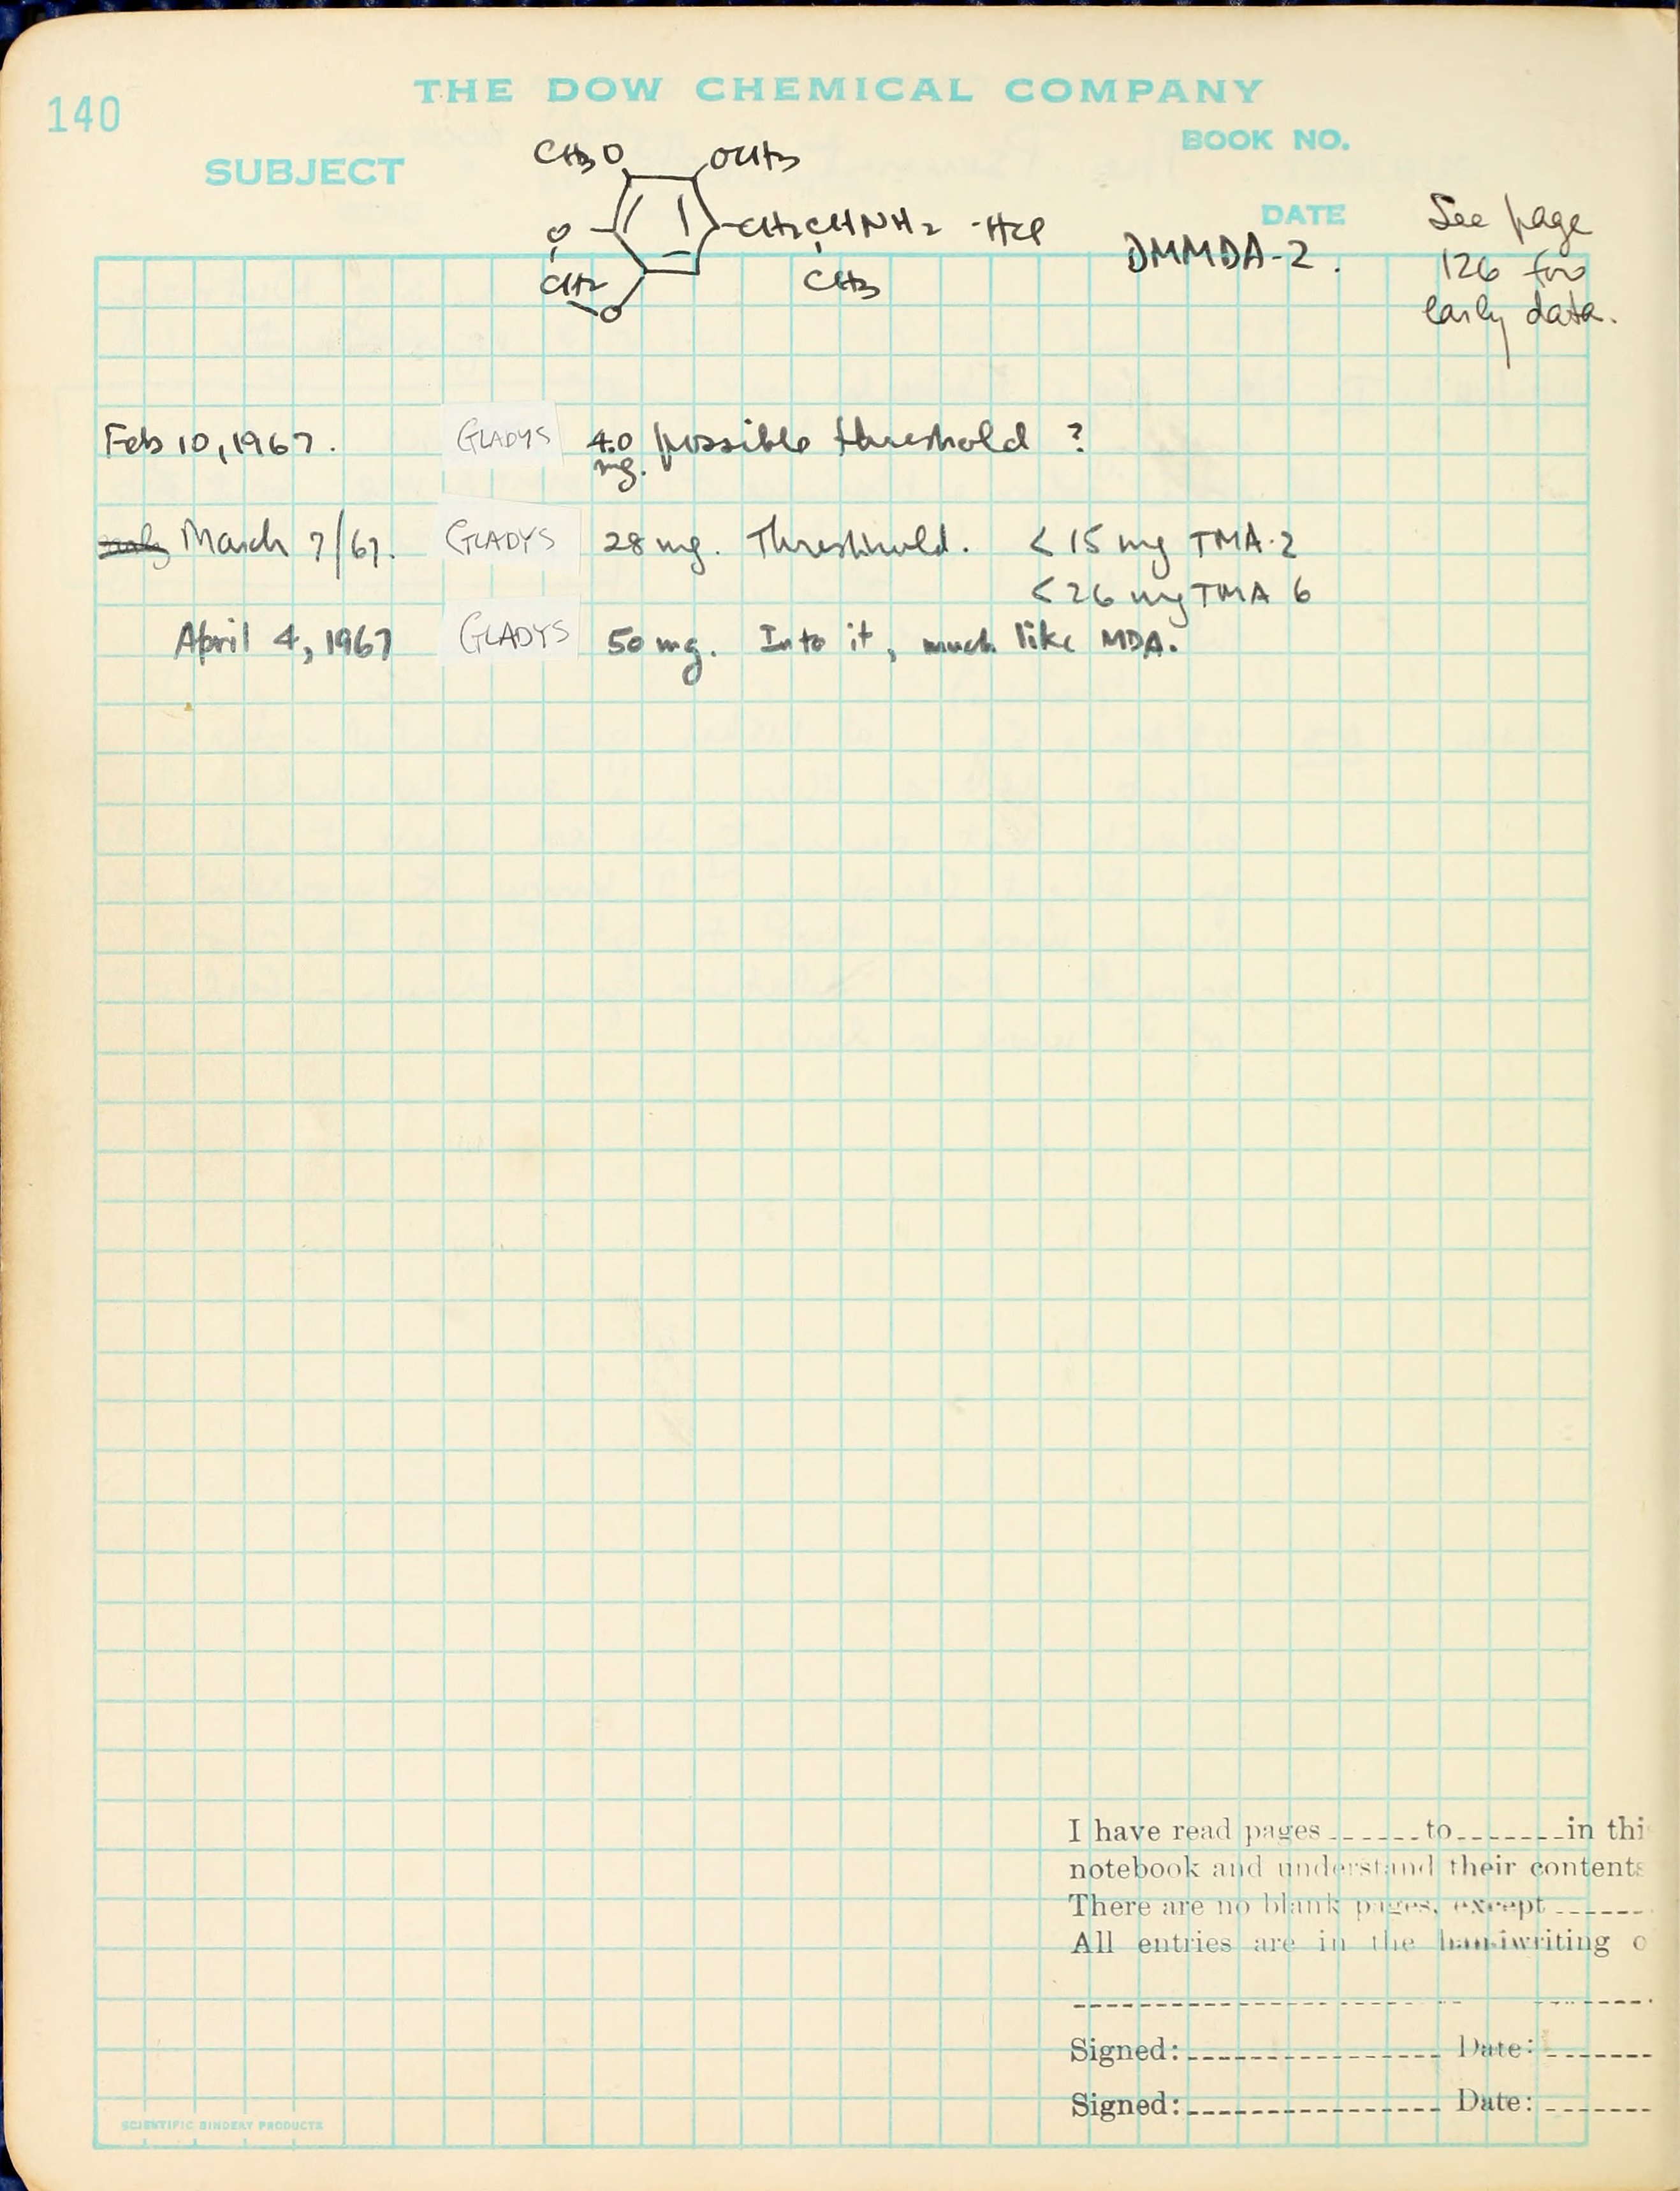 140
THE DOW CHEMICAL COMPANY
BOOK NO.
SUBJECT
DATE
CH3O OCH3
O CH2CHNH2 ·HCl
CH2 CH3
O
DMMDA-2.
See page
126 for
early data.
Feb 10, 1967. GLADYS 4.0 possible threshold ?
mg.
March 7/67. GLADYS 28 mg. Threshhold. < 15 mg TMA-2
< 26 mg TMA 6
April 4, 1967 GLADYS 50 mg. Into it, much like MDA.
I have read pages to in thi
notebook and understand their contents
There are no blank pages, except
All entries are in the handwriting o
Signed: Date:
Signed: Date:
SCIENTIFIC BINDERY PRODUCTS